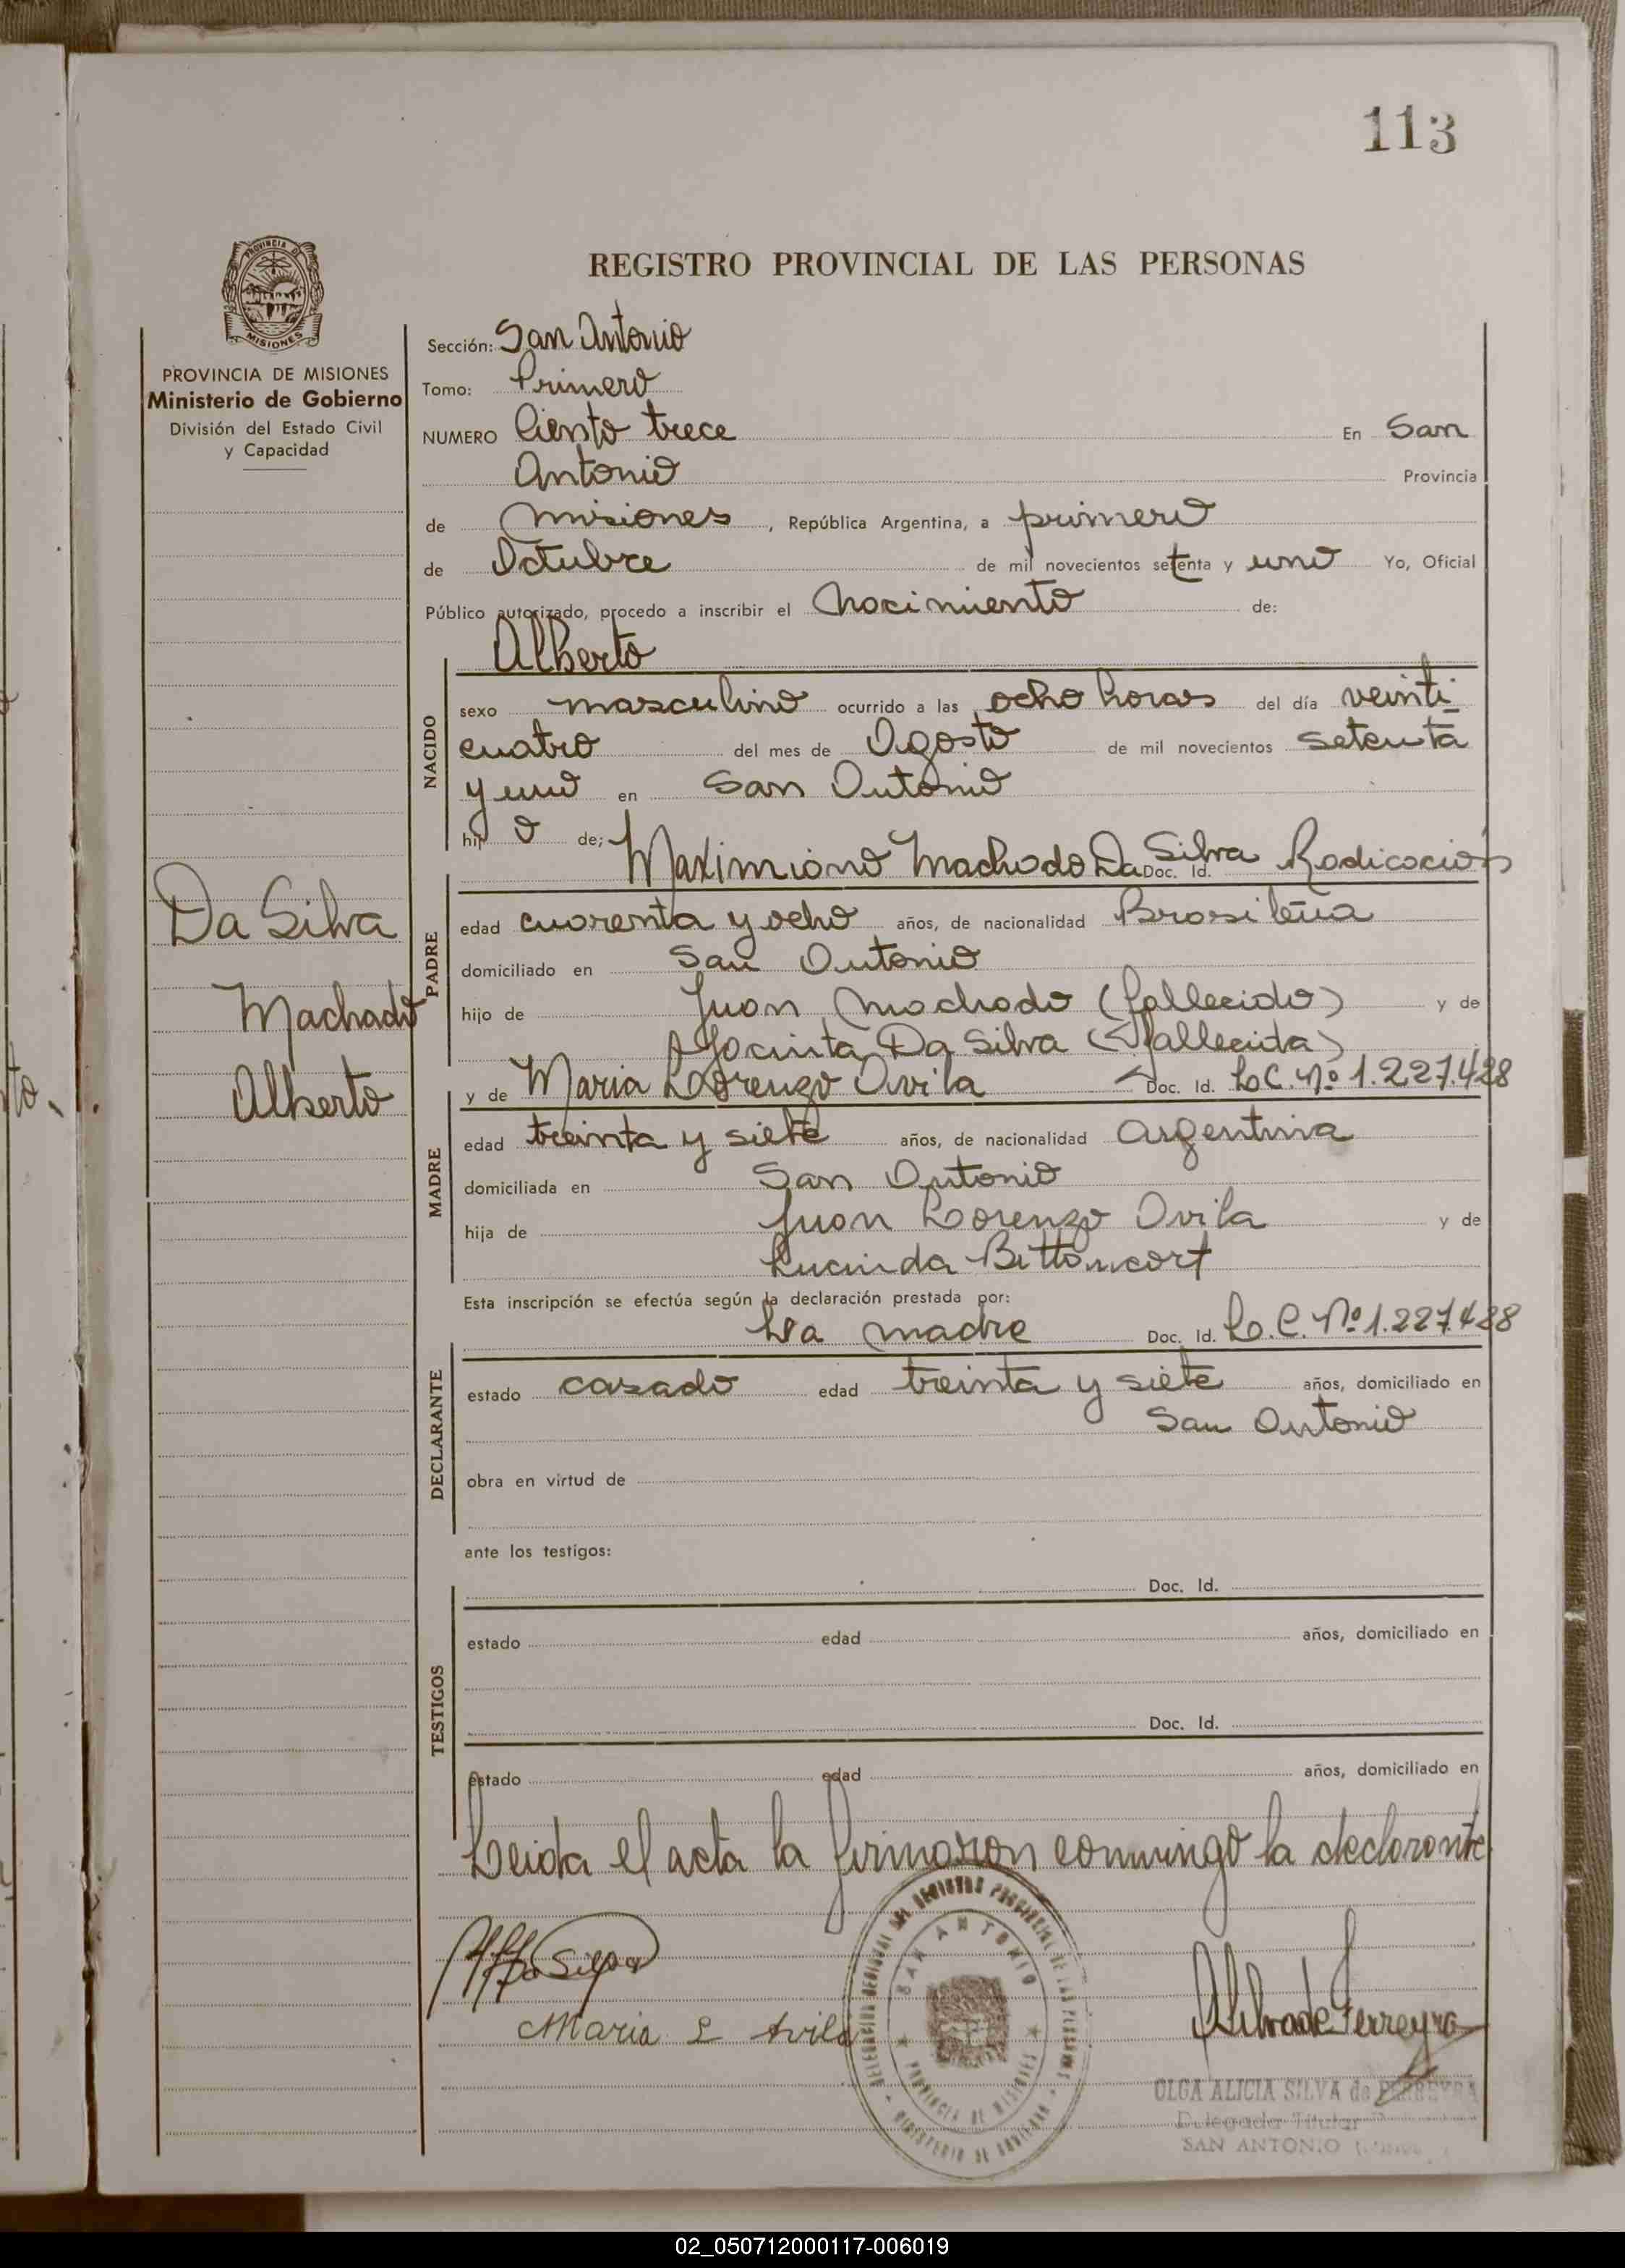 113
PROVINCIA DE
MISIONES
REGISTRO PROVINCIAL DE LAS PERSONAS
PROVINCIA DE MISIONES
Ministerio de Gobierno
División del Estado Civil
y Capacidad
Da Silva
Machado
Alberto
Sección: San Antonio
Tomo: Primero
NUMERO Ciento trece En San
Antonio Provincia
de Misiones, República Argentina, a primero
de Octubre de mil novecientos setenta y uno Yo, Oficial
Público autorizado, procedo a inscribir el Nacimiento de:
Alberto
NACIDO
sexo masculino ocurrido a las ocho horas del día veinti
cuatro del mes de Agosto de mil novecientos setenta
y uno en San Antonio
hijo de; Maximiano Machado Da Silva Doc. Id. Radicación
PADRE
edad cuarenta y ocho años, de nacionalidad Brasileña
domiciliado en San Antonio
hijo de Juan Machado (fallecido) y de
Jacinta Da Silva (fallecida)
y de Maria Lorenzo Avila Doc. Id. L.C. Nº 1.227.428
MADRE
edad treinta y siete años, de nacionalidad Argentina
domiciliada en San Antonio
hija de Juan Lorenzo Avila y de
Lucinda Bittencort
Esta inscripción se efectúa según la declaración prestada por:
La madre Doc. Id. L.C. Nº 1.227.428
DECLARANTE
estado casado edad treinta y siete años, domiciliado en
San Antonio
obra en virtud de
ante los testigos:
Doc. Id.
TESTIGOS
estado edad años, domiciliado en
Doc. Id.
estado edad años, domiciliado en
Leida el acta la firmaron conmingo la declarante
Da Silva
Maria L Avila
SAN ANTONIO
PROVINCIA DE MISIONES
Silva de Ferreyra
OLGA ALICIA SILVA de FERREYRA
Delegada Titular
SAN ANTONIO
02_050712000117-006019